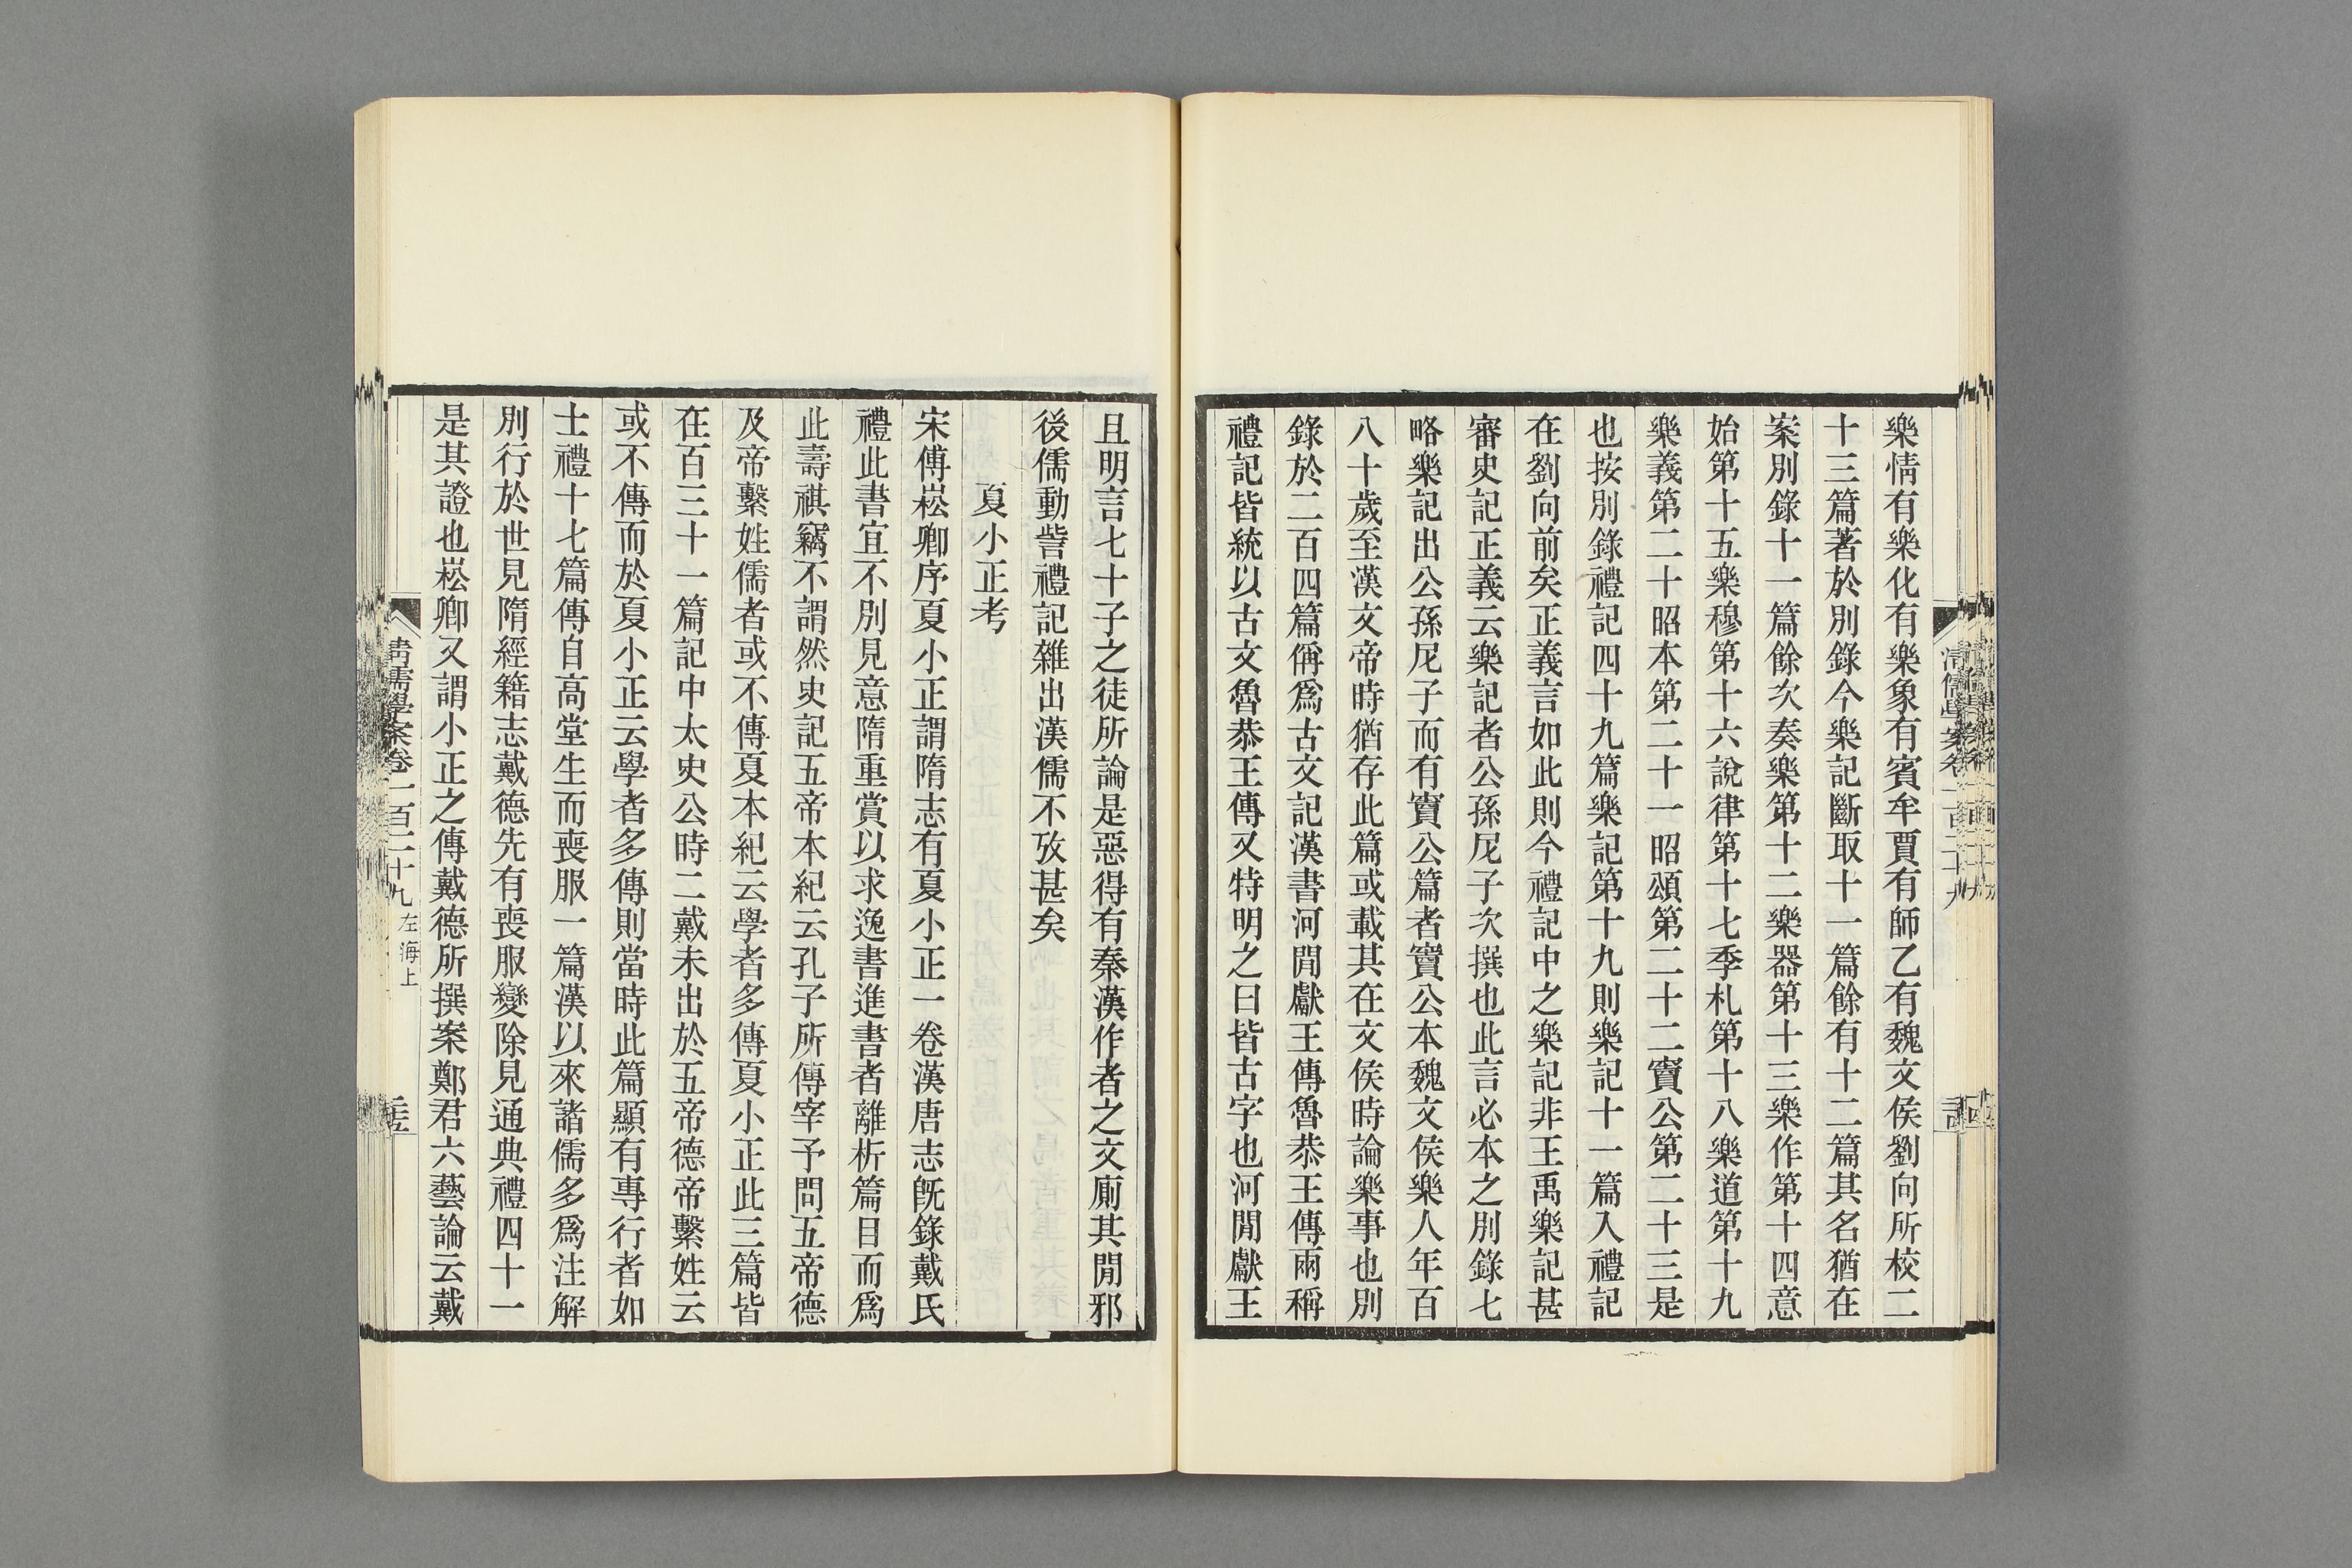 樂情有樂化有樂象有賓牟賈有師乙有魏文侯劉向所校二
十三篇著於別錄今樂記斷取十一篇餘有十二篇其名猶在
案別錄十一篇餘次奏樂第十二樂器第十三樂作第十四意
始第十五樂穆第十六說律第十七季札第十八樂道第十九
樂義第二十昭本第二十一昭頌第二十二竇公第二十三是
也按別錄禮記四十九篇樂記第十九則樂記十一篇入禮記
在劉向前矣正義言如此則今禮記中之樂記非王禹樂記甚
審史記正義云樂記者公孫尼子次撰也此言必本之別錄七
略樂記出公孫尼子而有竇公篇者竇公本魏文侯樂人年百
八十歲至漢文帝時猶存此篇或載其在文侯時論樂事也別
錄於二百四篇偁爲古文記漢書河閒獻王傳魯恭王傳兩稱
禮記皆統以古文魯恭王傳又特明之曰皆古字也河閒獻王
且明言七十子之徒所論是惡得有秦漢作者之文廁其閒邪
後儒動訾禮記雜出漢儒不攷甚矣
夏小正考
宋傅崧卿序夏小正謂隋志有夏小正一卷漢唐志旣錄戴氏
禮此書宜不別見意隋重賞以求逸書進書者離析篇目而爲
此壽祺竊不謂然史記五帝本紀云孔子所傳宰予問五帝德
及帝繫姓儒者或不傳夏本紀云學者多傳夏小正此三篇皆
在百三十一篇記中太史公時二戴未出於五帝德帝繫姓云
或不傳而於夏小正云學者多傳則當時此篇顯有專行者如
士禮十七篇傳自高堂生而喪服一篇漢以來諸儒多爲注解
別行於世見隋經籍志戴德先有喪服變除見通典禮四十一
是其證也崧卿又謂小正之傳戴德所撰案鄭君六藝論云戴
清儒學案卷一百二十九 左海上